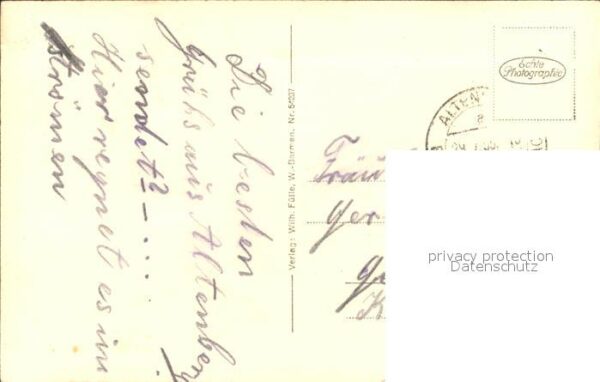 Die besten
Grüße aus Altenberg
sendet? – ....
Hier regnet es in
Strömen
Verlag: Wilh. Fülle, W.-Barmen. Nr. 5/207
Echte
Photographie
ALTEN
Fräu
Ger
privacy protection
Datenschutz